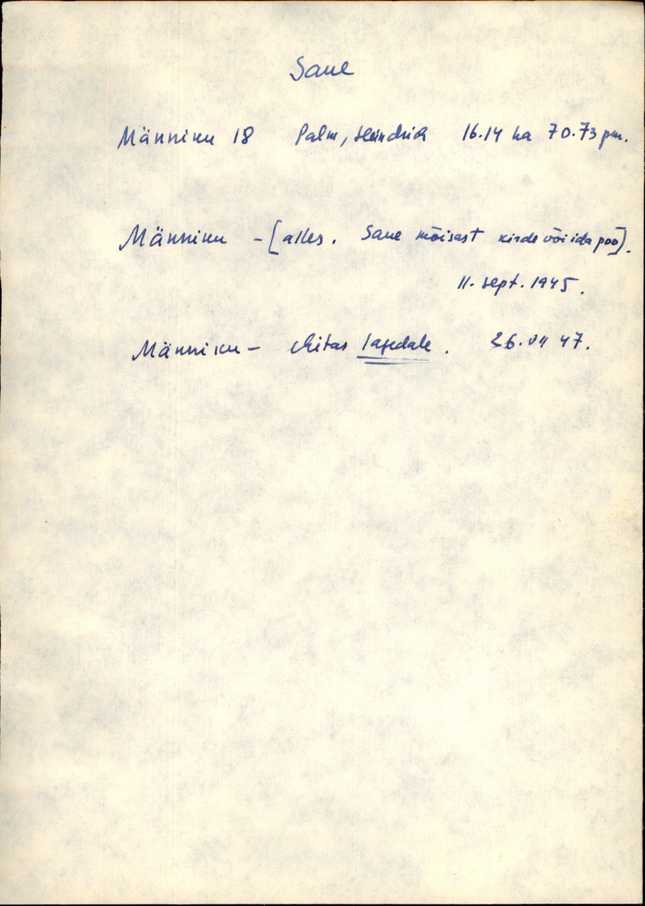 Saue
Männiku 18 Palm, Hindrik 16.14 ha 70.73 pm.
Männiku - [alles. Saue mõisast kirde või ida poo].
11. sept. 1945.
Männiku - ehitas lagedale. 26. VII 47.